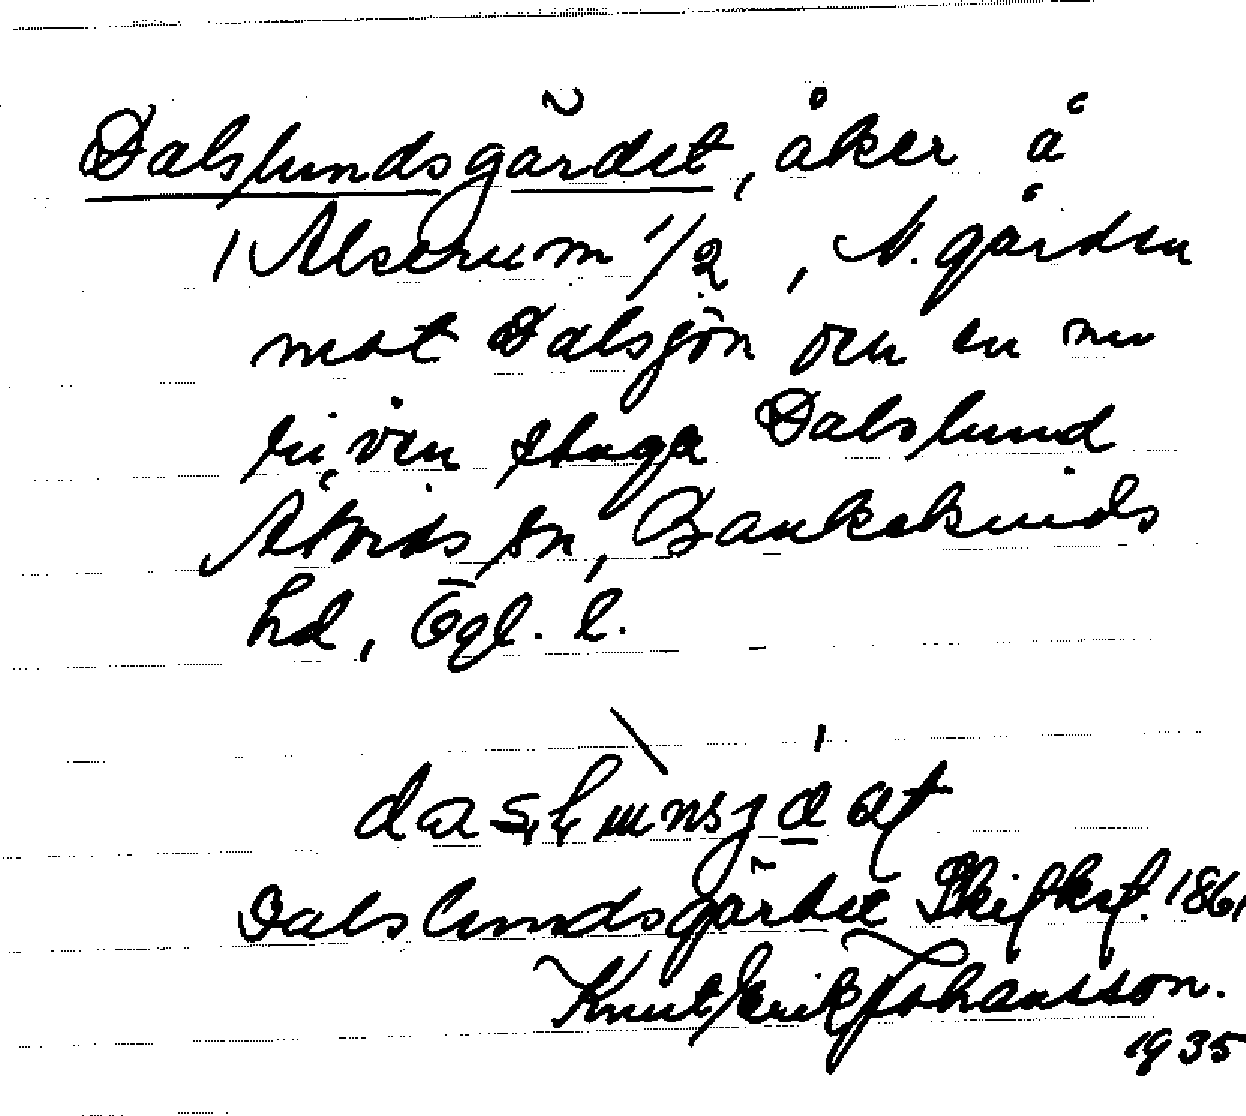 Dalslundsgärdet, åker å
1 Alserum 1/2, N. gården
mot Dalsjön och en nu
riven stuga Dalslund
Åtvids sn, Bankekinds
hd, Ögl. l.
Dalslundsgärdet Skifksf. 1861
Knut Erik Johansson.
1935